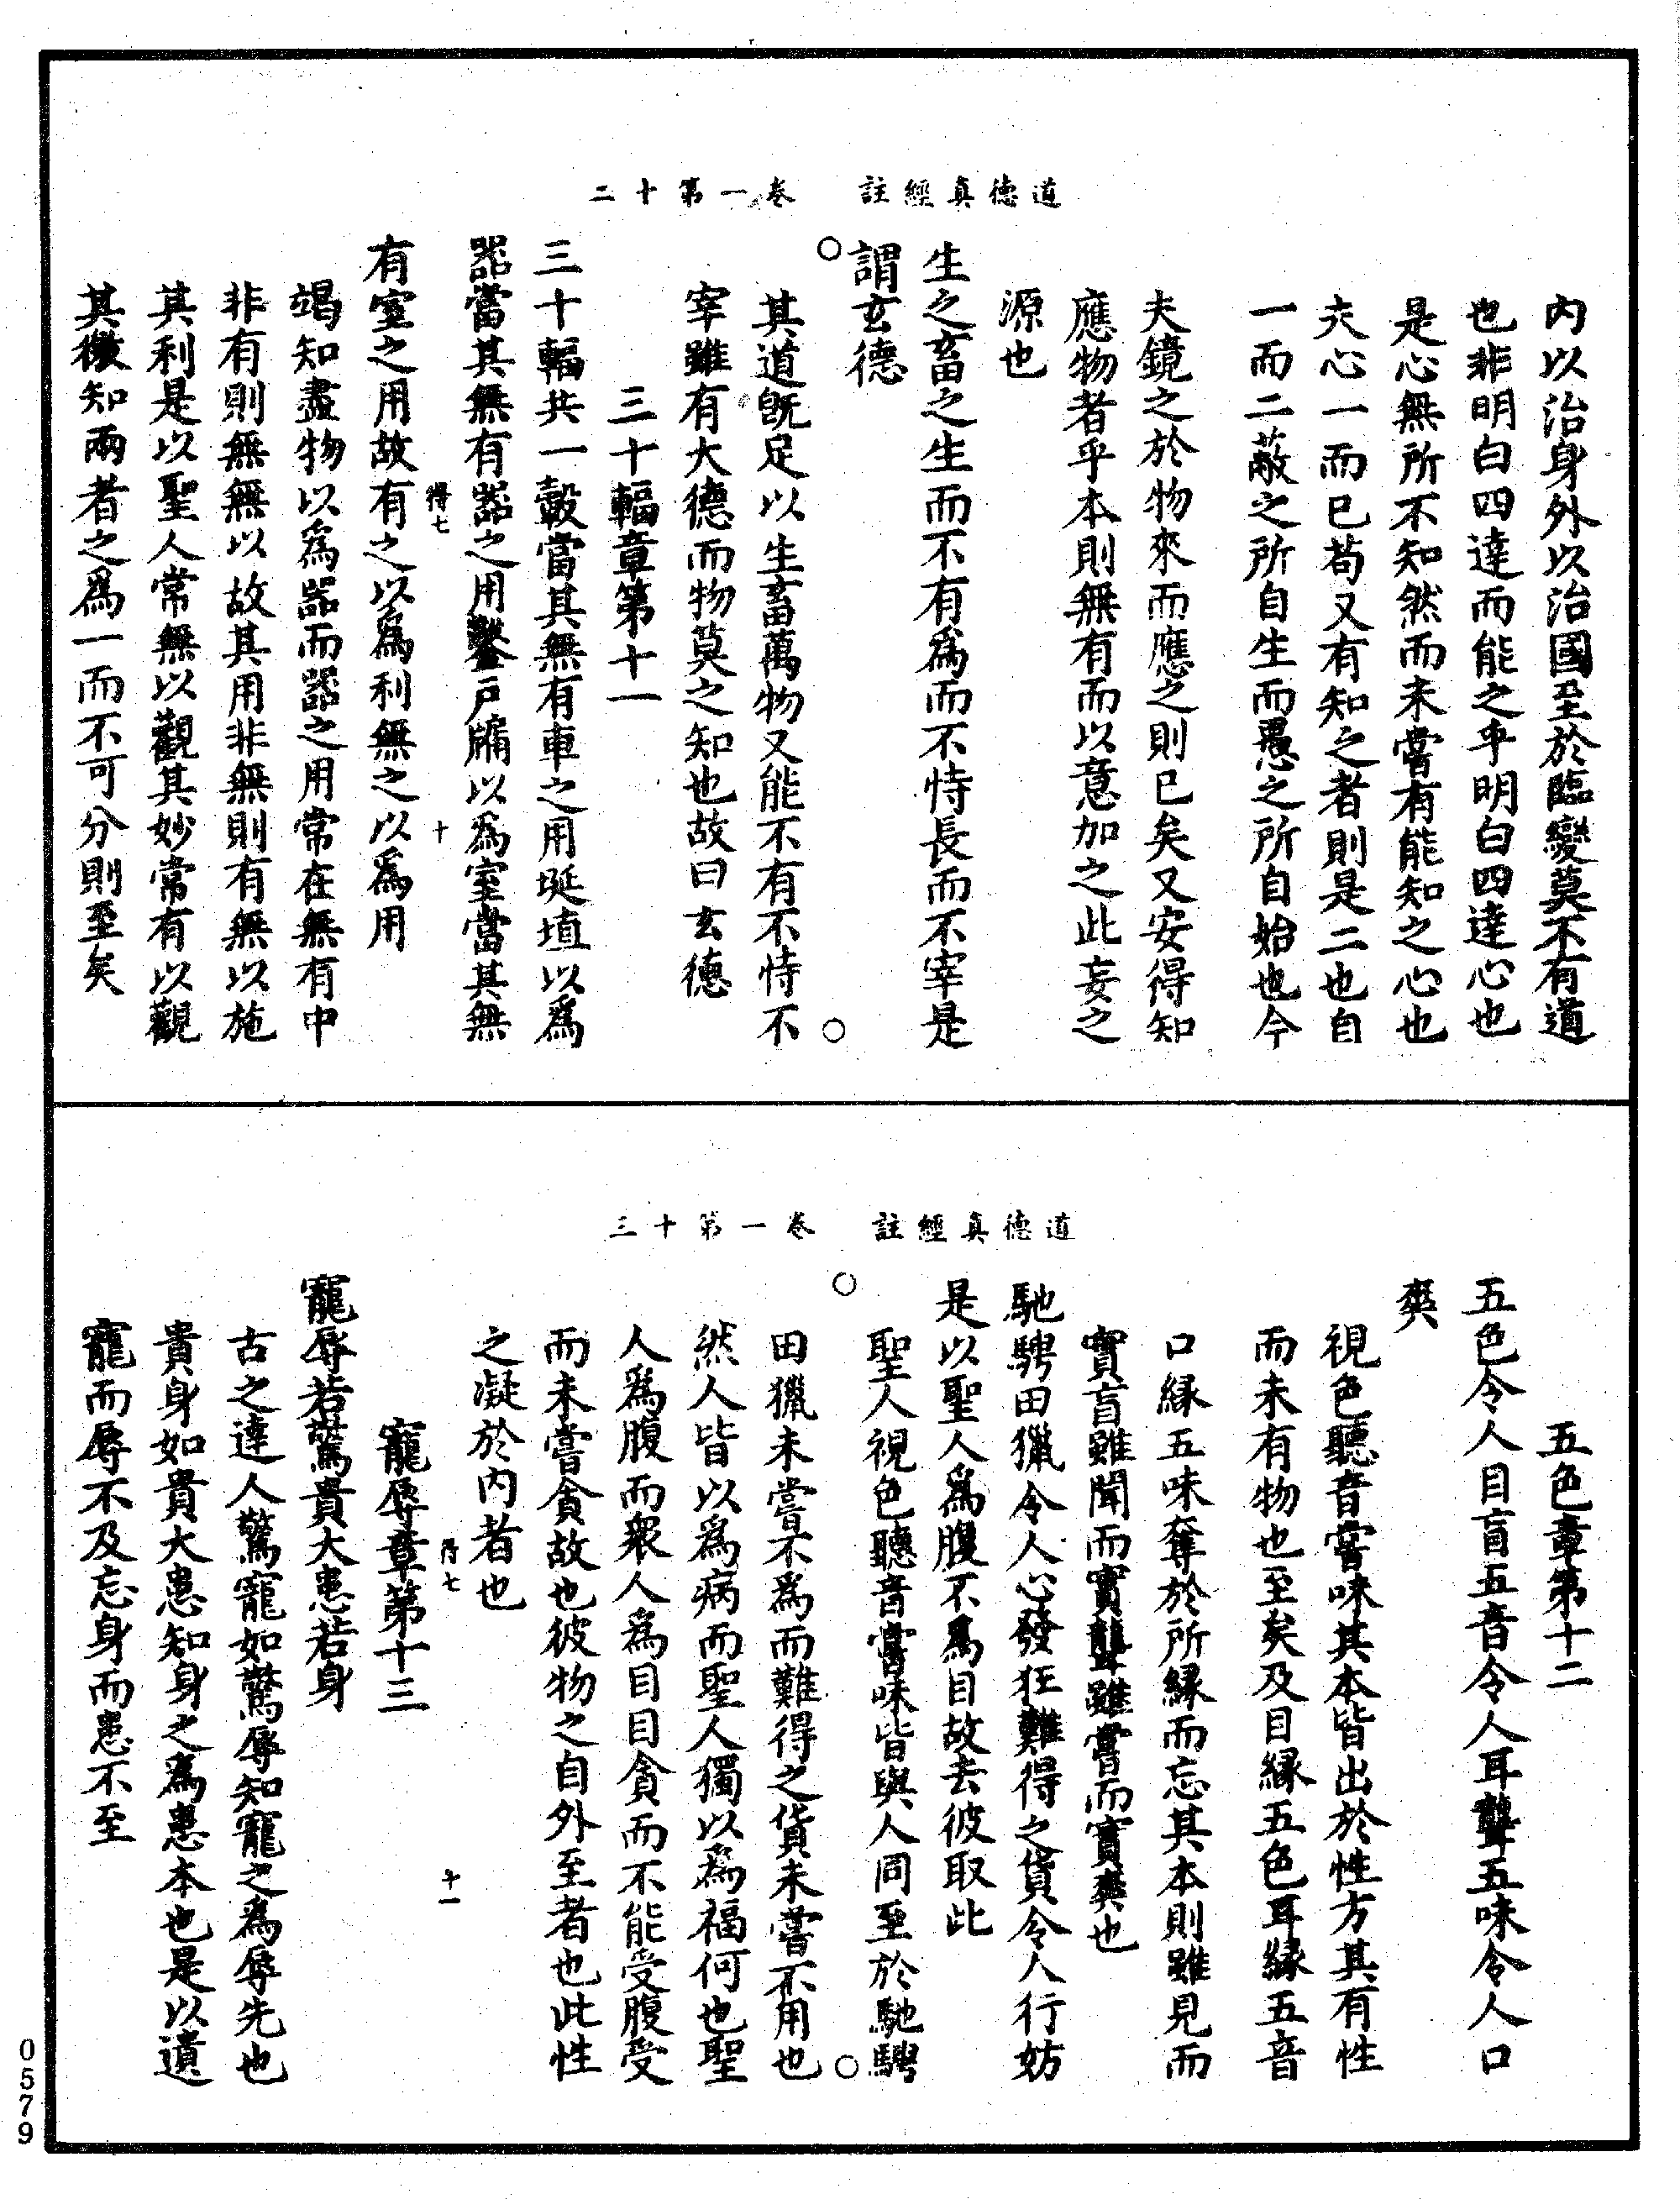 道德真經註　卷一第十二
內以治身外以治國至於臨變莫不有道
也非明白四達而能之乎明白四達心也
是心無所不知然而未嘗有能知之心也
夫心一而已苟又有知之者則是二也自
一而二蔽之所自生而愚之所自始也今
夫鏡之於物來而應之則已矣又安得知
應物者乎本則無有而以意加之此妄之
源也
生之畜之生而不有為而不恃長而不宰是
謂玄德
其道既足以生畜萬物又能不有不恃不
宰雖有大德而物莫之知也故曰玄德
三十輻章第十一
三十輻共一轂當其無有車之用埏埴以為
器當其無有器之用鑿戶牖以為室當其無
得七　十
有室之用故有之以為利無之以為用
竭知盡物以為器而器之用常在無有中
非有則無無以故其用非無則有無以施
其利是以聖人常無以觀其妙常有以觀
其徼知兩者之為一而不可分則至矣
道德真經註　卷一第十三
五色章第十二
五色令人目盲五音令人耳聾五味令人口
爽
視色聽音嘗味其本皆出於性方其有性
而未有物也至矣及目緣五色耳緣五音
口緣五味奪於所緣而忘其本則雖見而
實盲雖聞而實聾雖嘗而實爽也
馳騁田獵令人心發狂難得之貨令人行妨
是以聖人為腹不為目故去彼取此
聖人視色聽音嘗味皆與人同至於馳騁
田獵未嘗不為而難得之貨未嘗不用也
然人皆以為病而聖人獨以為福何也聖
人為腹而眾人為目目貪而不能受腹受
而未嘗貪故也彼物之自外至者也此性
之凝於內者也
得七　十一
寵辱章第十三
寵辱若驚貴大患若身
古之達人驚寵如驚辱知寵之為辱先也
貴身如貴大患知身之為患本也是以遺
寵而辱不及忘身而患不至
0579